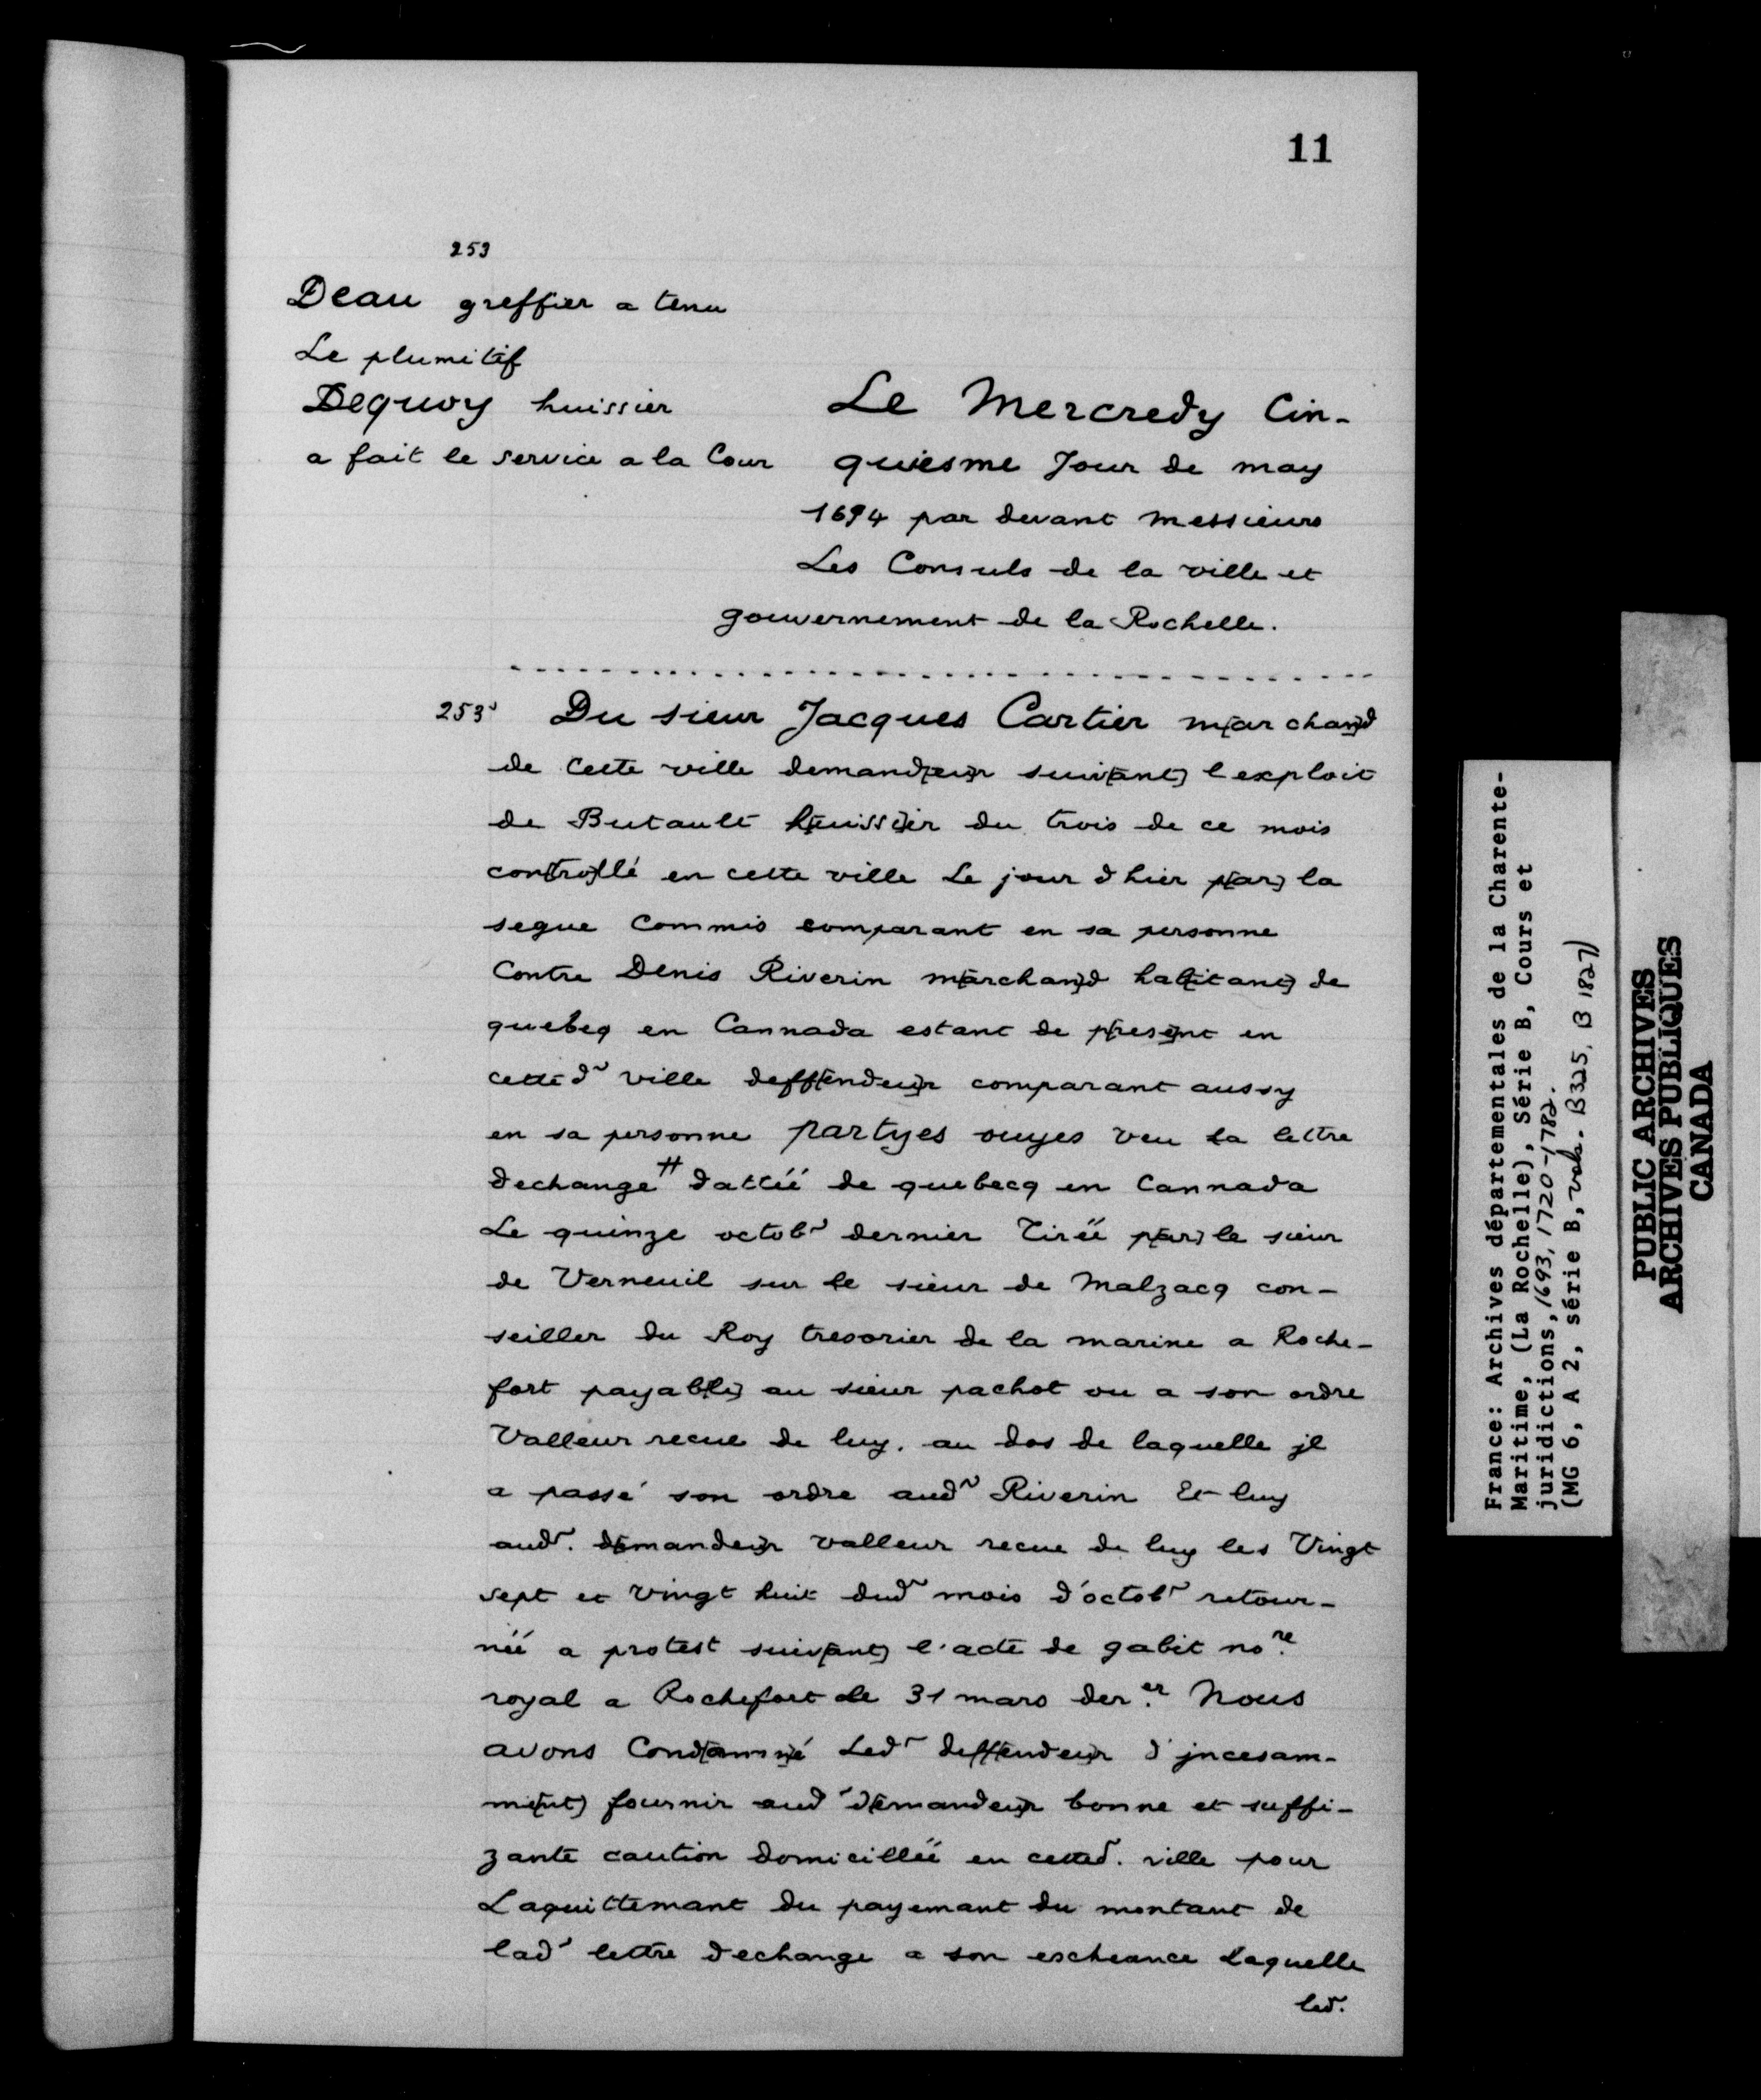 11
253
Deau greffier a tenu
Le plumitif
Dequoy huissier
a fait le service a la Cour
Le Mercredy Cin-
quiesme Jour de may
1694 par devant messieurs
Les Consuls de la ville et
gouvernement de la Rochelle.
253v Du sieur Jacques Cartier m[ar]chan[d]
de cette ville demand[eu]r suiv[ant] l exploit
de Butault h[uiss]ier du trois de ce mois
con[tro]llé en cette ville Le jour d hier p[ar] la
segue Commis comparant en sa personne
Contre Denis Riverin m[archan]d ha[bitant] de
quebeq en Cannada estant de p[rese]nt en
cetted ville deff[endeu]r comparant aussy
en sa personne partyes ouyes veu la lettre
dechange # dattéé de quebecq en Cannada
Le quinze octobr dernier Tiréé p[ar] le sieur
de Verneuil sur le sieur de Malzacq con-
seiller du Roy tresorier de la marine a Roche-
fort payab[le] au sieur pachot ou a son ordre
Valleur recue de luy. au dos de laquelle jl
a passé son ordre aud Riverin Et luy
aud. d[emandeu]r valleur recue de luy les Vingt
sept et vingt huit dud mois d'octobr retour-
néé a protest suiv[ant] l'acte de gabit nore
royal a Rochefort le 31 mars der.er Nous
avons Cond[amn]é Led deff[endeu]r d'jncesam-
m[ent] fournir aud d[emandeu]r bonne et suffi-
zante caution domicilléé en cetted. ville pour
Laquittemant du payemant du montant de
lad lettre dechange a son escheance Laquelle
led.
France: Archives départementales de la Charente-
Maritime, (La Rochelle), Série B, Cours et
juridictions, 1693, 1720-1782.
(MG 6, A 2, série B, vols. B325, B 1827)
PUBLIC ARCHIVES
ARCHIVES PUBLIQUES
CANADA